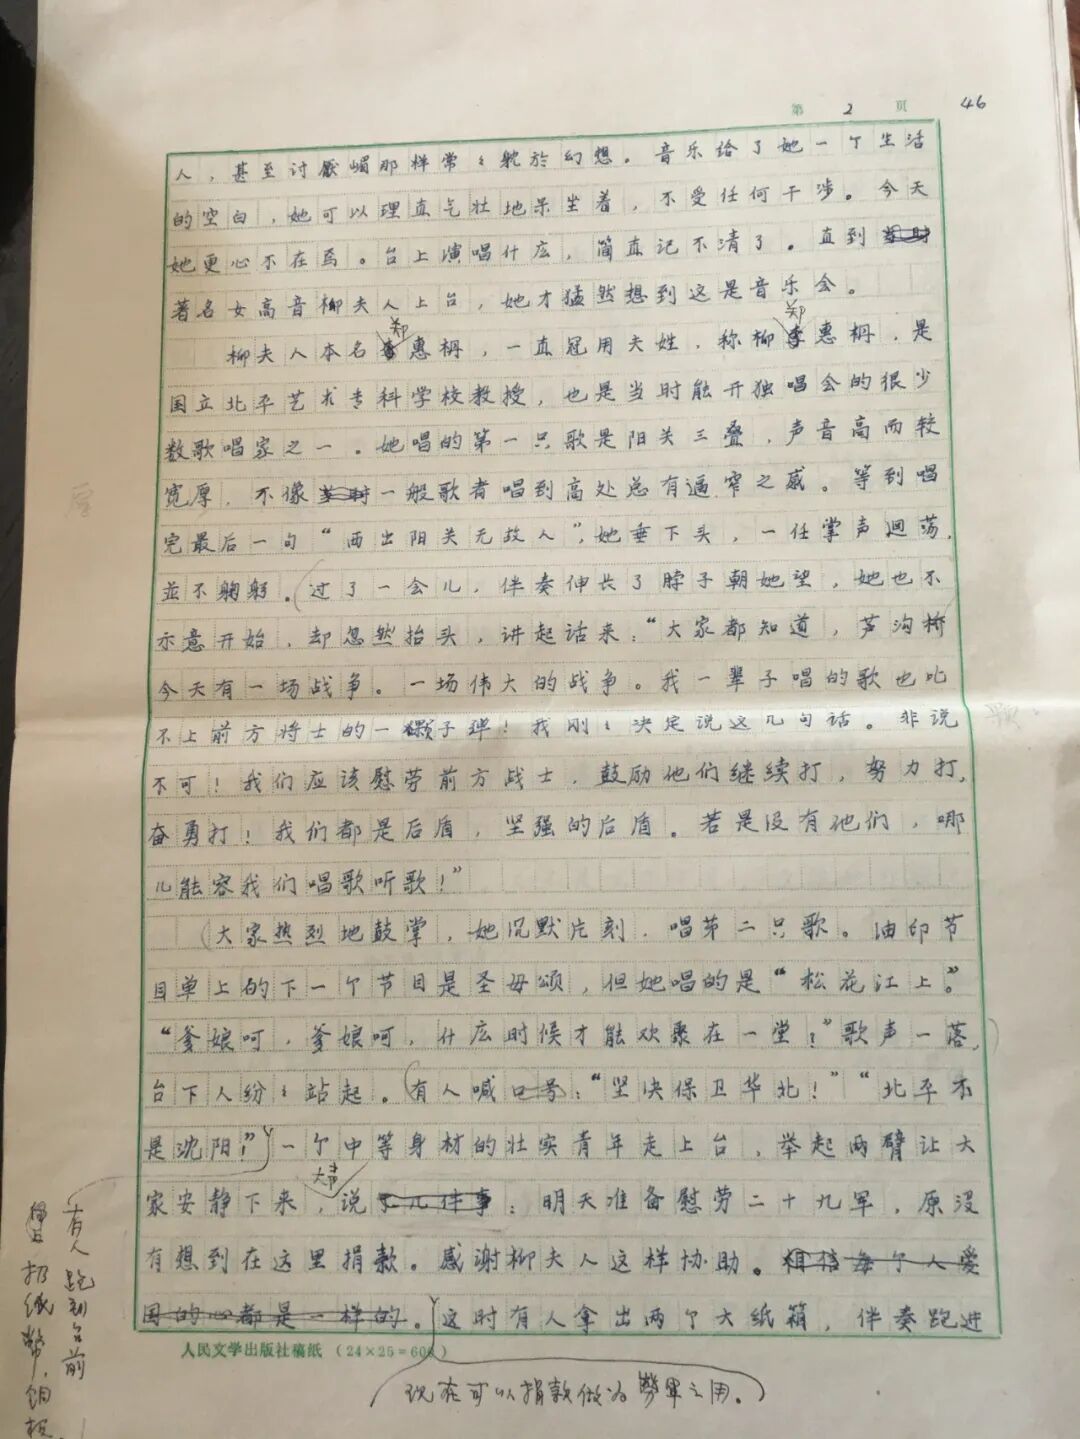 第 2 页 46
人，甚至讨厌嵋那样常〻躭於幻想。音乐给了她一个生活
的空白，她可以理直气壮地呆坐着，不受任何干涉。今天
她更心不在焉。台上演唱什庅，简直记不清了。直到
著名女高音柳夫人上台，她才猛然想到这是音乐会。
郑 郑
柳夫人本名李惠枬，一直冠用夫姓，称柳李惠枬，是
国立北平艺术专科学校教授，也是当时能开独唱会的很少
数歌唱家之一。她唱的第一只歌是阳关三叠，声音高而较
宽厚，不像一般歌者唱到高处总有逼窄之感。等到唱
完最后一句“西出阳关无故人”，她垂下头，一任掌声迴荡，
並不鞠躬。过了一会儿，伴奏伸长了脖子朝她望，她也不
示意开始，却忽然抬头，讲起话来：“大家都知道，芦沟桥
今天有一场战争。一场伟大的战争。我一辈子唱的歌也比
不上前方将士的一颗子弹！我刚〻决定说这几句话。非说
不可！我们应该慰劳前方战士，鼓励他们继续打，努力打，
奋勇打！我们都是后盾，坚强的后盾。若是没有他们，哪
儿能容我们唱歌听歌！”
大家热烈地鼓掌，她沉默片刻，唱第二只歌。油印节
目单上的下一个节目是圣母颂，但她唱的是“松花江上”。
“爹娘呵，爹娘呵，什庅时候才能欢聚在一堂？”歌声一落，
台下人纷〻站起。有人喊口号：“坚决保卫华北！”“北平不
是沈阳！”一个中等身材的壮实青年走上台，举起两臂让大
大声
家安静下来，说了几件事：明天准备慰劳二十九军，原没
有想到在这里捐款。感谢柳夫人这样协助。相信每个人爱
国的心都是一样的。这时有人拿出两个大纸箱，伴奏跑进
人民文学出版社稿纸（24×25=600）
现在可以捐款做为劳军之用。
有人跑到台前
扔纸幣，钢